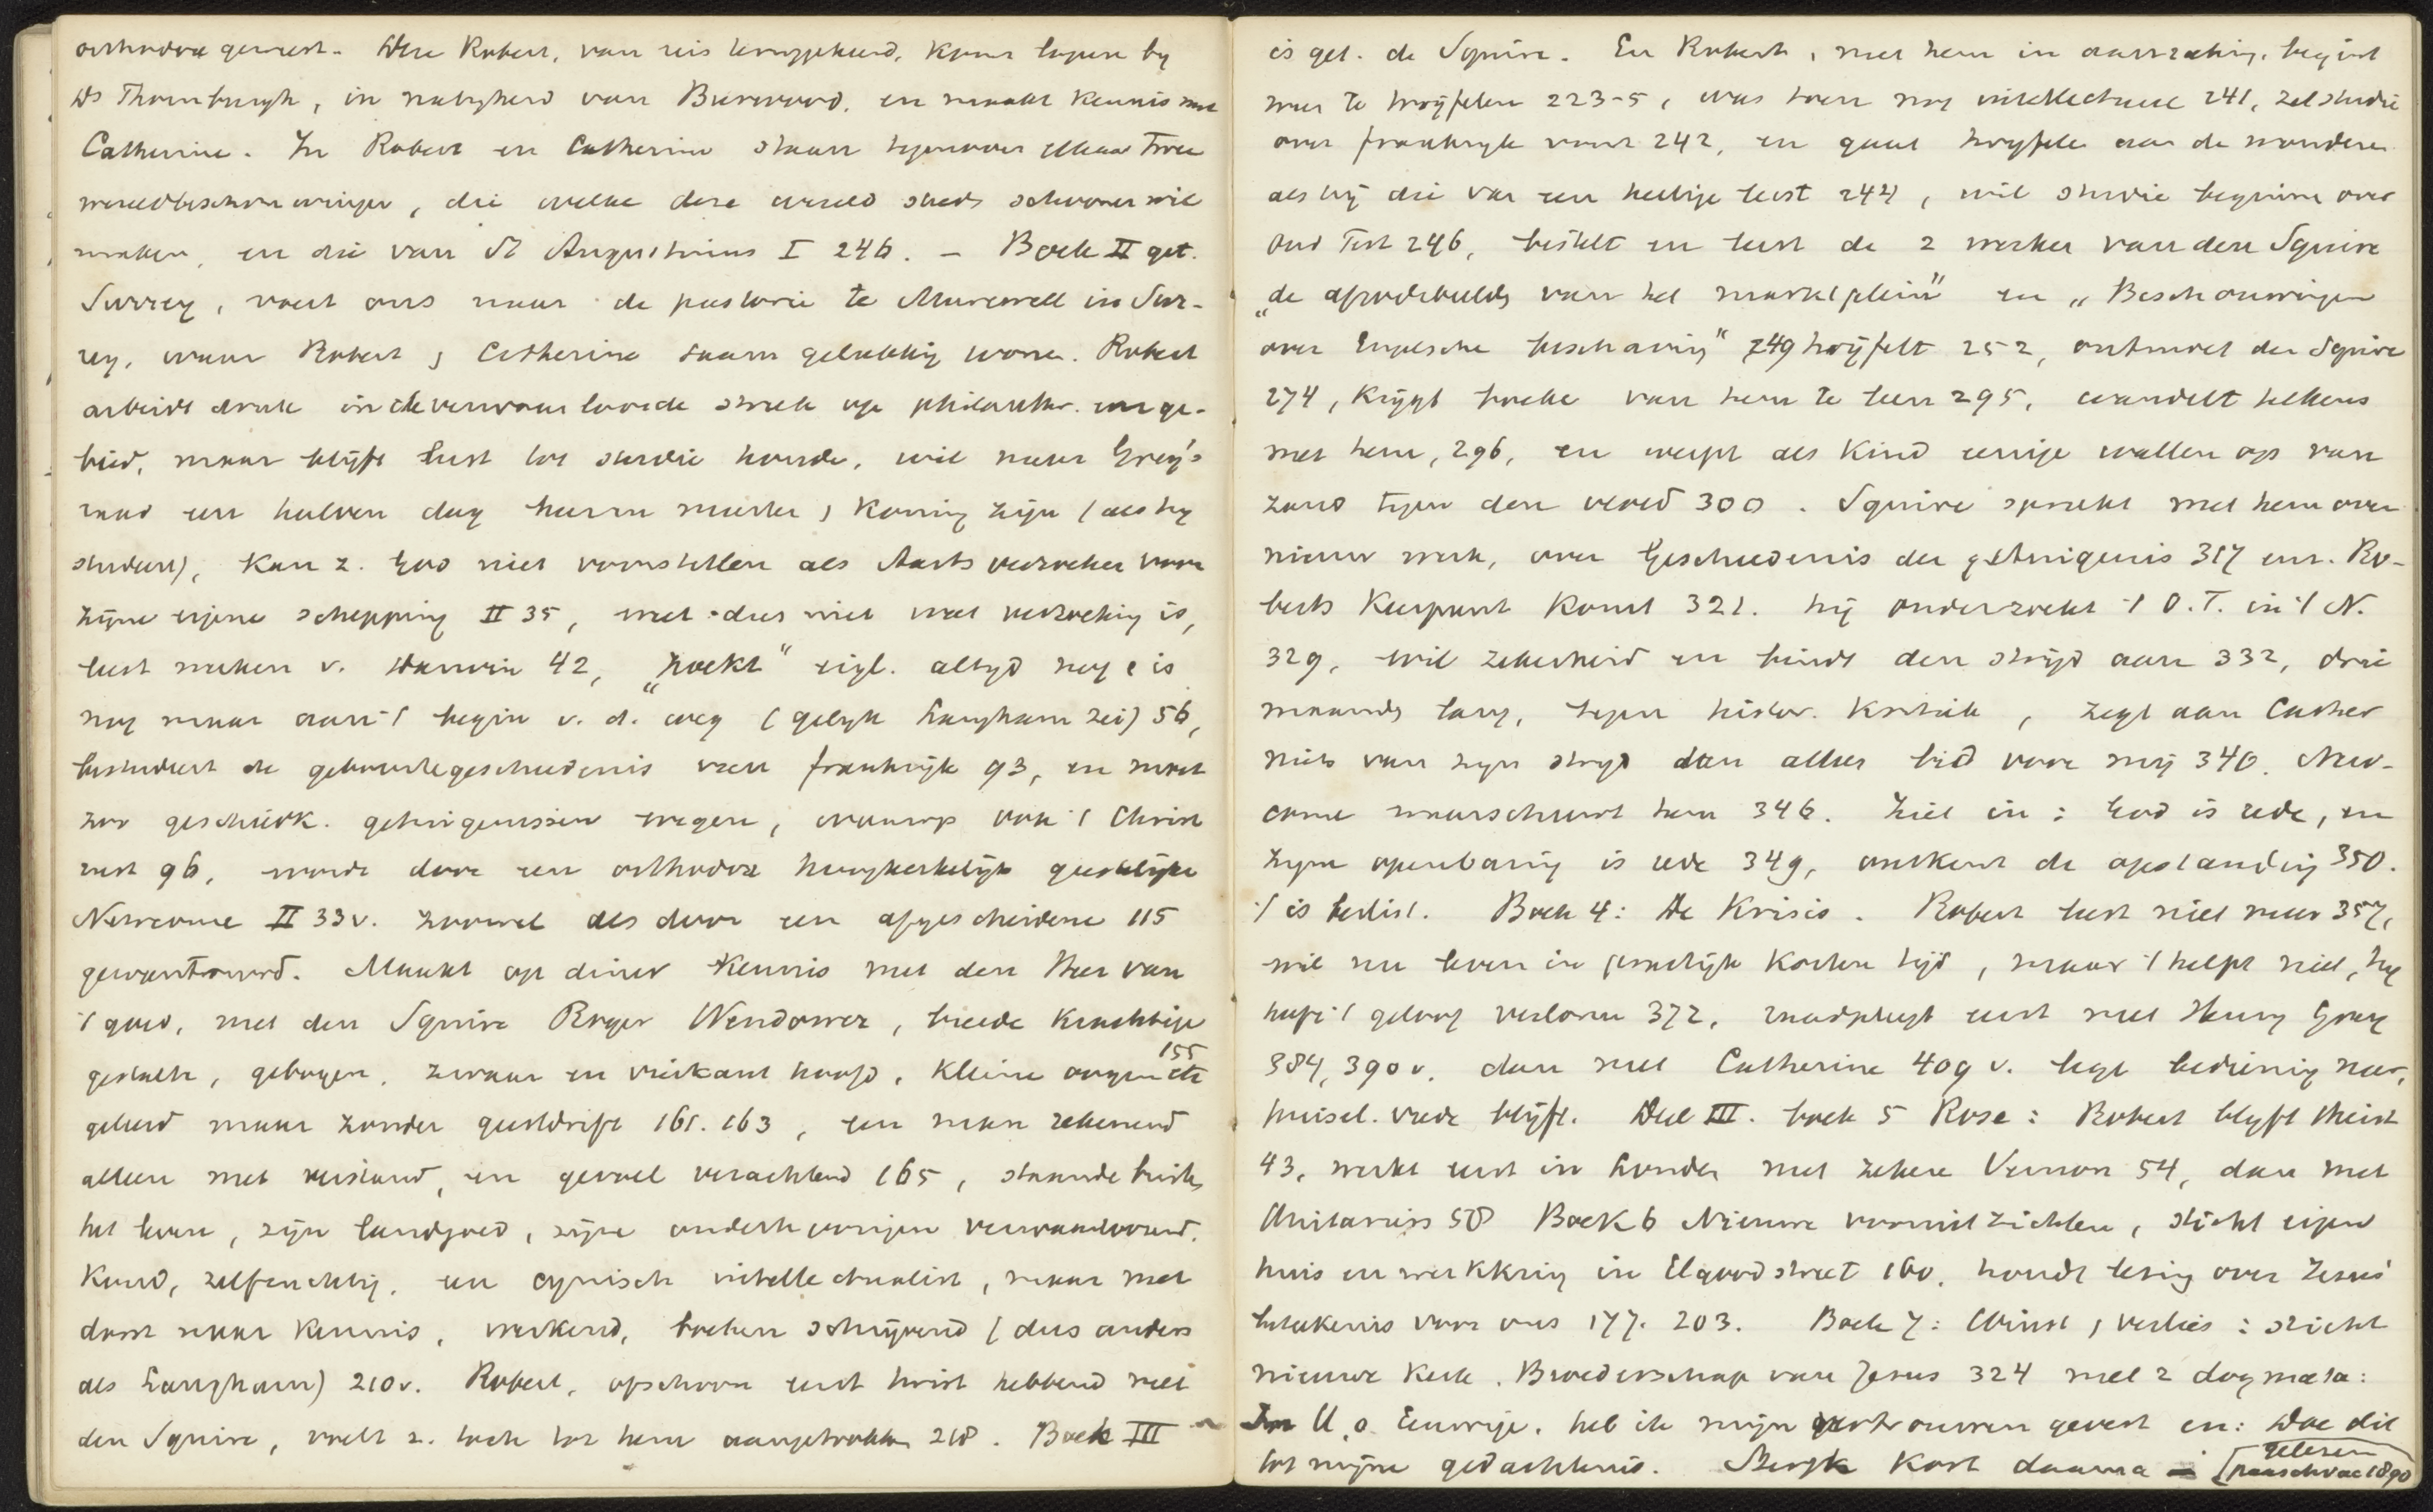 orthodox geweest. Deze Robert, van reis teruggekeerd, komt logeren by
Ds Thornburgh, in nabyheid van Burwood, en maakt kennis met
Catherine. In Robert en Catherine staan tegenover elkaar twee
wereldbeschouwingen, die welke deze wereld steeds schooner wil
maken, en die van St Augustinus I 246. – Boek II get.
Surrey, voert ons naar de pastorie te Murewell in Sur-
rey, waar Robert & Catherine saam gelukkig wonen. Robert
arbeidt druk in de verwaarloosde streek op philanthr. en ge-
bied, maar blijft lust tot studie houden, wil naar Grey's
raad een halven dag heer meester & koning zijn (als hy
studeert), kan z. God niet voorstellen als Aartsverzoeker voor
zijne eigene schepping II 35, weet dus niet wat verzoeking is,
leest werken v. Darwin 42, „zoekt" eigl. altyd nog & is
nog maar aan 't begin v. d. weg (gelyk Langham zei) 56,
bestudeert de geboortegeschiedenis van frankrijk 93, en moet
zoo geschiedk. getuigenissen wegen, waarop ook 't Christ
rust 96, wordt door een orthodox hoogkerkelijk geestelijke
Newcome II 33v. zoowel als door een afgescheidene 115
gewantrouwd. Maakt op diner kennis met den Heer van
't goed, met den Squire Roger Wendower, breede krachtige
gestalte, gebogen, zwaar en vierkant hoofd, kleine oogen etc 155
geleerd maar zonder geestdrift 161. 163, een man rekenend
alleen met verstand, en gevoel verachtend 165, staande buiten
het leven, zijn landgoed, zijne onderhoorigen verwaarloozend.
Koud, zelfzuchtig, een cynisch intellectualist, maar met
dorst naar kennis, werkend, boeken schrijvend (dus anders
als Langham) 210v. Robert, ofschoon eerst twist hebbend met
den Squire, voelt z. toch tot hem aangetrokken 218. Boek III
is get. de Squire. En Robert, met hem in aanraking, begint
meer te twijfelen 223-5, was toen nog intellectueel 241, zet studie
over frankryk voort 242, en gaat twyfelen aan de wonderen
als hij die van een heilige leest 244, wil studie beginnen over
Oud Test 246, bestelt en leest de 2 werken van den Squire
„de afgodsbeelden van het marktplein" en „Beschouwingen
over Engelsche beschaving" 249 twijfelt 252, ontmoet den Squire
274, krijgt boeken van hem te leen 295, wandelt telkens
met hem, 296, en werpt als kind eenige wallen op van
zand tegen den vloed 300. Squire spreekt met hem over
nieuw werk, over Geschiedenis der getuigenis 317 enz. Ro-
berts keerpunt komt 321. hij onderzoekt 't O.T. in 't N.
329, wil zekerheid en bindt den strijd aan 332, drie
maanden lang, tegen histor. kritiek, zegt aan Cather
niets van zijn strijd dan alleen bid voor mij 340. New-
come waarschuwt hem 346. Ziet in: God is rede, en
zijne openbaring is rede 349, ontkent de opstanding 350.
't is beslist. Boek 4: De Krisis. Robert leest niet meer 357,
wil nu leven in praktijk korten tijd, maar 't helpt niet, hy
heeft 't geloof verloren 372, raadpleegt eerst met Henry Grey
384, 390v. dan met Catherine 409 v. legt bediening neer,
huisel. vrede blijft. Deel III. boek 5 Rose: Robert blyft theist
43, werkt eerst in Londen met zekere Vernon 54, dan met
Unitariërs 58 Boek 6 Nieuwe vooruitzichten, sticht eigen
huis en werkkring in Elgood street 160, houdt lezing over Jezus'
beteekenis voor ons 177. 203. Boek 7: Winst & verlies: sticht
nieuwe kerk. Broederschap van Jezus 324 met 2 dogmata:
In U, o Eeuwige, heb ik mijn vertrouwen gevest en: Doe dit
tot mijne gedachtenis. Sterft kort daarna – [gelezen
paaschvac 1890]